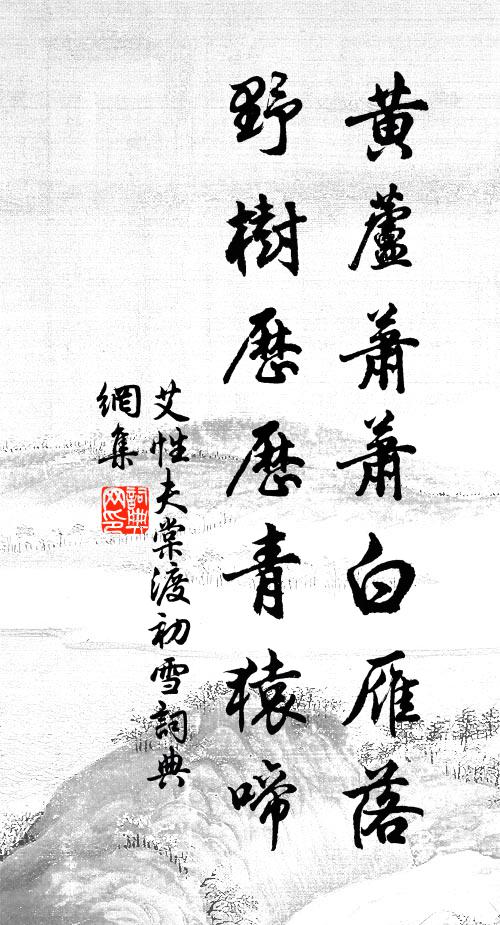 黃蘆蕭蕭白雁落
野樹歷歷青猿啼
艾性夫棠渡初雪詞典
網集
詞典
网印